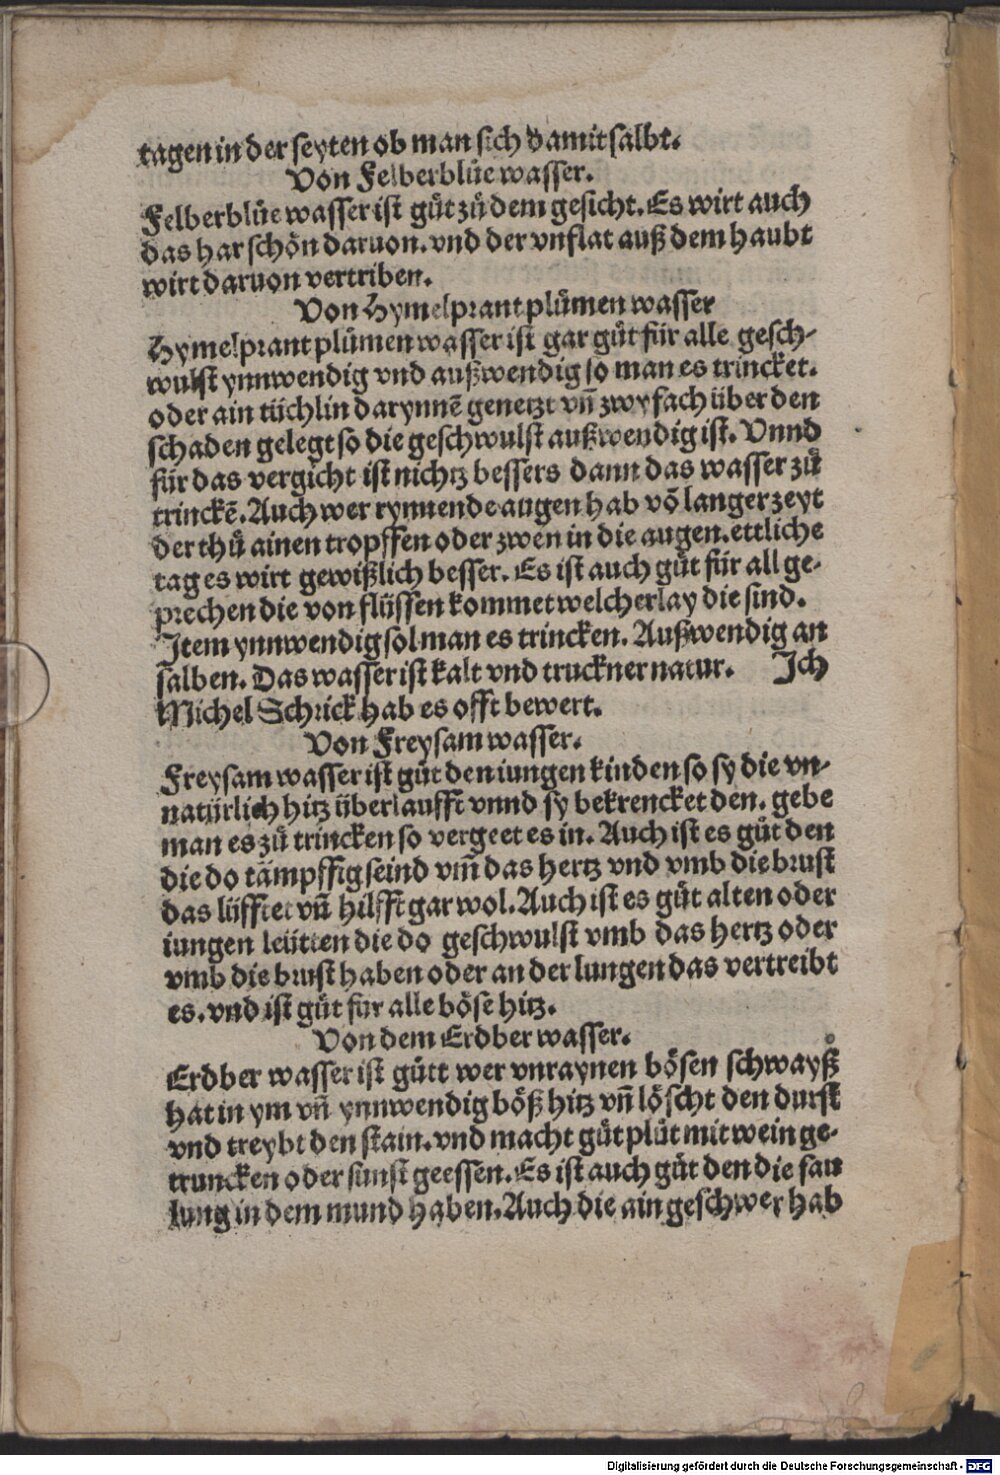 tagen in der seyten ob man sich damit salbt.
Von Felberblüe wasser.
Felberblüe wasser ist gůt zů dem gesicht. Es wirt auch
das har schön daruon. vnd der vnflat auß dem haubt
wirt daruon vertriben.
Von Hymelprant plůmen wasser
Hymelprant plůmen wasser ist gar gůt für alle gesch-
wulst ynnwendig vnd außwendig so man es trincket.
oder ain tüchlin darynnē genetzt vn̄ zwyfach über den
schaden gelegt so die geschwulst außwendig ist. Vnnd
für das vergicht ist nichtz bessers dann das wasser zů
trinckē. Auch wer rynnende augen hab vō langer zeyt
der thů ainen tropffen oder zwen in die augen. ettliche
tag es wirt gewißlich besser. Es ist auch gůt für all ge-
prechen die von flüssen kommet welcherlay die sind.
Item ynnwendig sol man es trincken. Außwendig an
salben. Das wasser ist kalt vnd truckner natur. Ich
Michel Schrick hab es offt bewert.
Von Freysam wasser.
Freysam wasser ist gůt den iungen kinden so sy die vn-
natürlich hitz überlaufft vnnd sy bekrencket den. gebe
man es zů trincken so vergeet es in. Auch ist es gůt den
die do tämpffig seind vm̄ das hertz vnd vmb die brust
das lüfftet vn̄ hilfft gar wol. Auch ist es gůt alten oder
iungen leütten die do geschwulst vmb das hertz oder
vmb die brust haben oder an der lungen das vertreibt
es. vnd ist gůt für alle böse hitz.
Von dem Erdber wasser.
Erdber wasser ist gůtt wer vnraynen bösen schwayß
hat in ym vn̄ ynnwendig böß hitz vn̄ löscht den durst
vnd treybt den stain. vnd macht gůt plůt mit wein ge-
truncken oder sunst geessen. Es ist auch gůt den die fau
lung in dem mund haben. Auch die ain geschwer hab
Digitalisierung gefördert durch die Deutsche Forschungsgemeinschaft - DFG